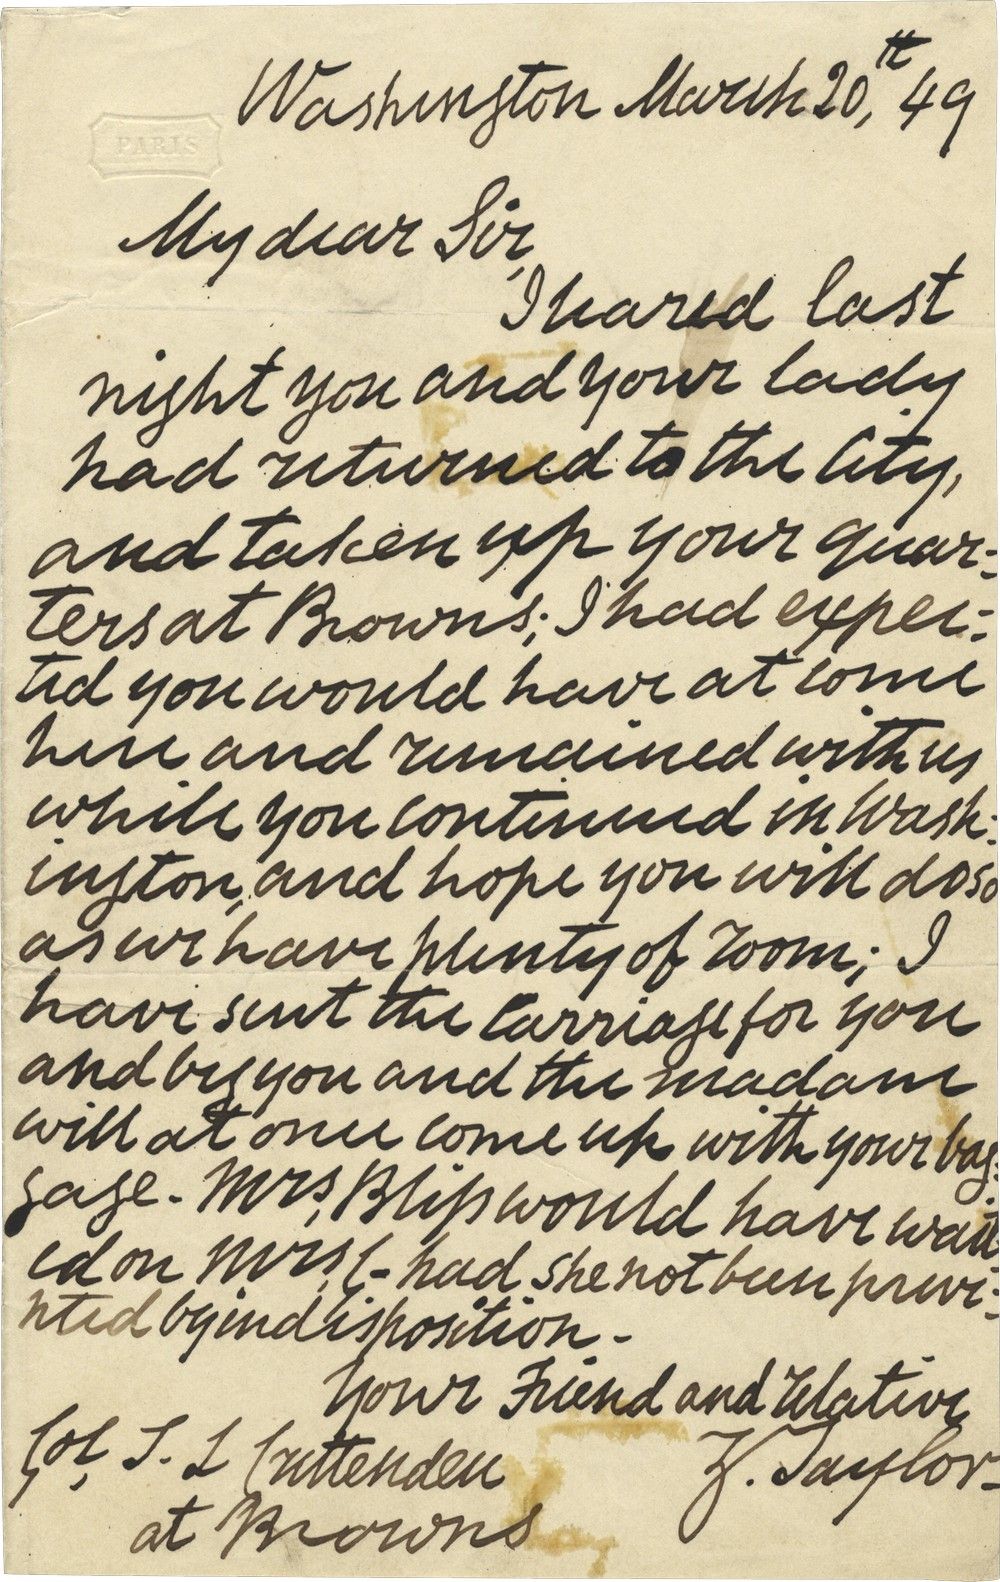 Washington March 20,th 49
PARIS
My dear Sir,
I heared last
night you and your lady
had returned to the City,
and taken up your quar:
ters at Browns; I had expec:
ted you would have at come
here and remained with us
while you continued in Wash:
ington, and hope you will do so
as we have plenty of room; I
have sent the Carriage for you
and beg you and the madam
will at once come up with your bag:
gage - Mrs, Bliss would have wait
ed on Mrs, C- had she not been preve:
nted by indisposition -
Your Friend and relative
Z. Taylor -
Col, T. L Crittenden
at Browns